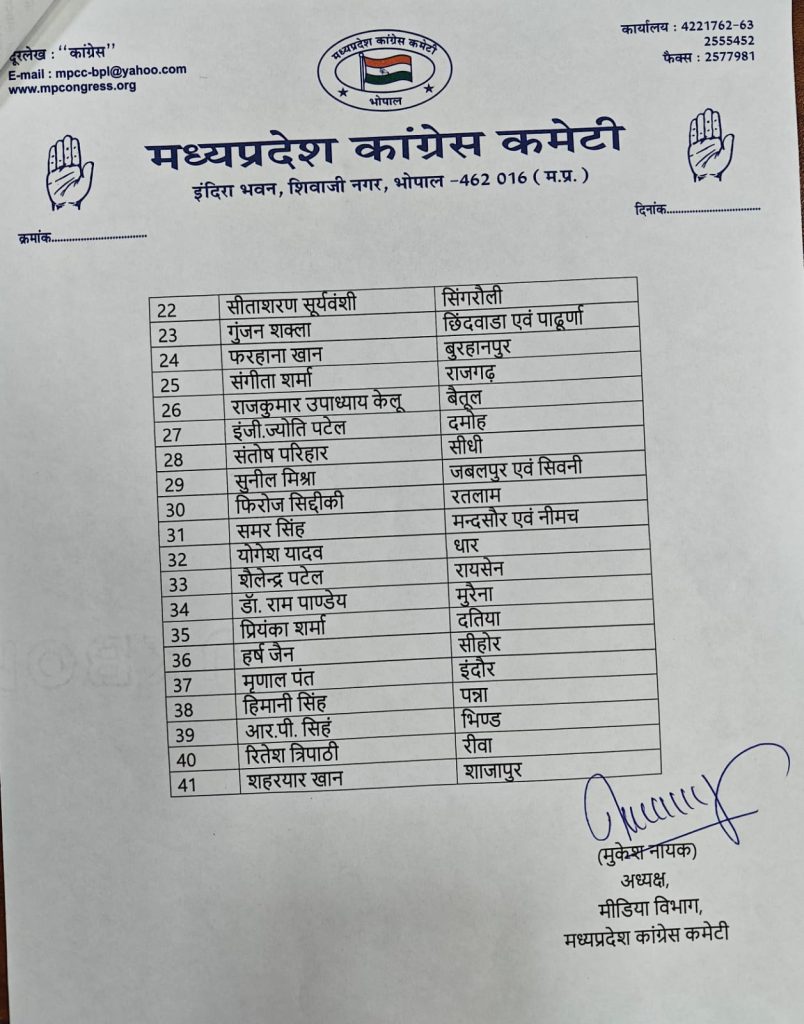 दूरलेख : "कांग्रेस"
E-mail : mpcc-bpl@yahoo.com
www.mpcongress.org
मध्यप्रदेश कांग्रेस कमेटी
भोपाल
कार्यालय : 4221762-63
2555452
फैक्स : 2577981
मध्यप्रदेश कांग्रेस कमेटी
इंदिरा भवन, शिवाजी नगर, भोपाल -462 016 ( म.प्र. )
क्रमांक.................................
दिनांक.................................
22 सीताशरण सूर्यवंशी सिंगरौली
23 गुंजन शक्ला छिंदवाडा एवं पाढूर्णा
24 फरहाना खान बुरहानपुर
25 संगीता शर्मा राजगढ़
26 राजकुमार उपाध्याय केलू बैतूल
27 इंजी.ज्योति पटेल दमोह
28 संतोष परिहार सीधी
29 सुनील मिश्रा जबलपुर एवं सिवनी
30 फिरोज सिद्दीकी रतलाम
31 समर सिंह मन्दसौर एवं नीमच
32 योगेश यादव धार
33 शैलेन्द्र पटेल रायसेन
34 डॅा. राम पाण्डेय मुरैना
35 प्रियंका शर्मा दतिया
36 हर्ष जैन सीहोर
37 मृणाल पंत इंदौर
38 हिमानी सिंह पन्ना
39 आर.पी. सिहं भिण्ड
40 रितेश त्रिपाठी रीवा
41 शहरयार खान शाजापुर
(मुकेश नायक)
अध्यक्ष,
मीडिया विभाग,
मध्यप्रदेश कांग्रेस कमेटी